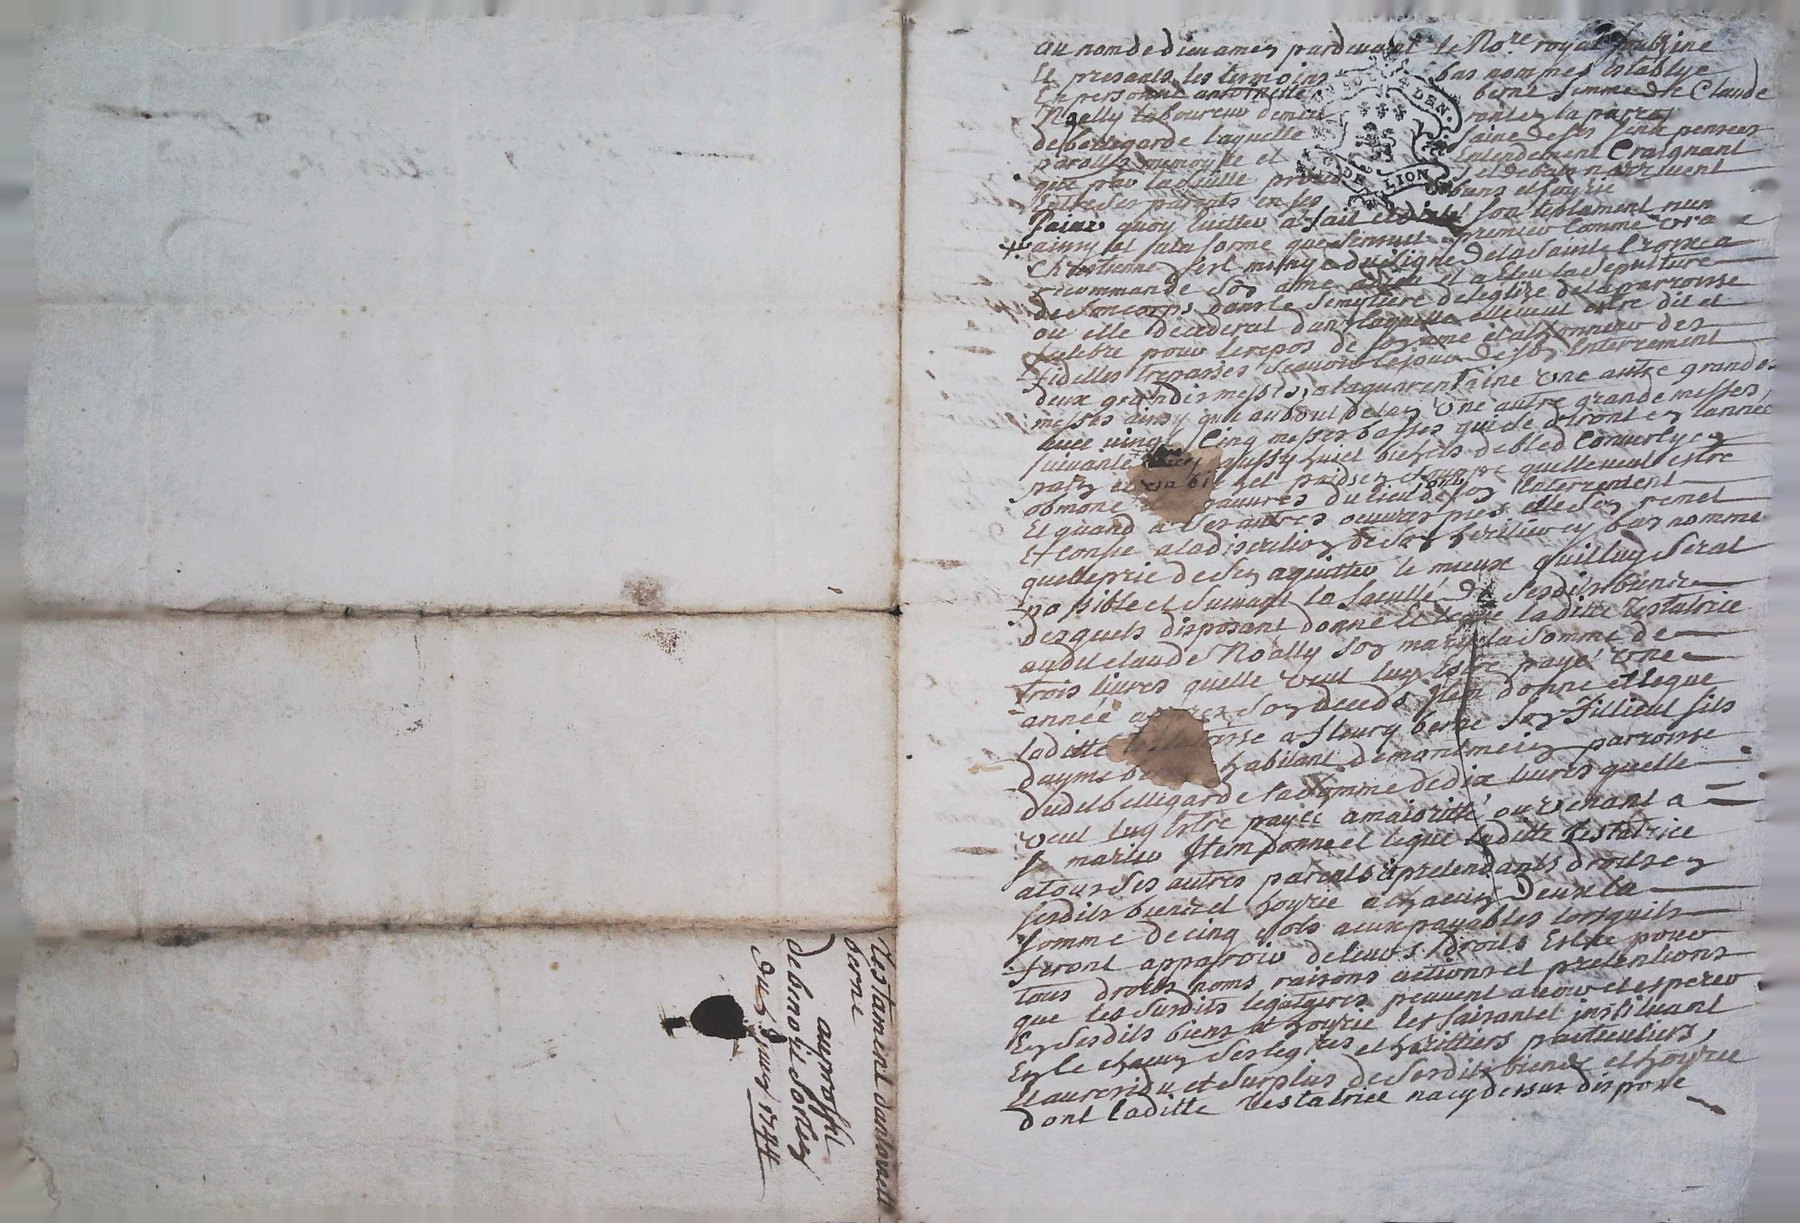 au nom de dieu amen pardevant le No.re royal soubzine
et presants les temoins bas nommes establye
En personne antoinette berne femme de Claude
Noally laboureur
de bellegarde laquelle saine de ses sens pensees
parolle memoyre et Entendement Craignant
que par la suitte
Entre ses parents en ses biens et hoyrie
Pour quoy eviter a fait et dicté son testament nun
ainsy et sa forme que sensuit premier comme vra
Chrestienne sest munye du signe de la sainte Croix a
recommandé son ame a dieu et a Eleu la sepulture
de son corps dans le Semytiere de leglise de la parroisse
ou elle decedera dans laquelle elle veut estre dit et
celebré pour le repos de son ame et a lhonneur des
fidelles trepasses scavoir le jour de son Enterrement
deux grandes messes, a la quarentaine une autre grande
messes ainsy que au bout de lan une autre grande messes
avec vingt Cinq messes basses qui se diront en lannée
suivante aussy huict bichets de bled Converty en
pain quelle veut estre
obmone pauvres du lieu de son Enterrement
Et quand a ses autres oeuvres pies elle sen remet
Et confie a la discretion de son heritier cy bas nomme
quelle prie de sen aquitter le mieux quil luy serat
possible et suivant la faculté de sesdits biens
desquels disposant donne et legue laditte testatrice
audit claude Noally son mary la somme de
trois livres quelle veut luy estre payé une
année apres son deceds Item donne et legue
laditte testatrice a fleury berne son fillieul fils
dayme habitant de montmein parroisse
dudet bellegarde la somme de dix livres quelle
veut luy Estre payée a maiorité ou venant a
se marier Item donne et legue laditte testatrice
a tous ses autres parents pretendants droits en
sesdits biens et hoyrie a chacun deux la
somme de cinq sols a eux payables lorsquils
feront apparoir de leurs droits Et ce pour
tous droits noms raisons actions et pretentions
que les susdits legataires peuvent avoir et esperer
En sesdits biens et hoyrie les faisant et instituant
En ce chacun ses legres et heritiers particuliers,
Et au residu et surplus de sesdits biens et hoyrie
dont laditte testatrice na cy dessus disposé
Testament dantoinett
berne
au proffit
de benoist
Du Juin 1744